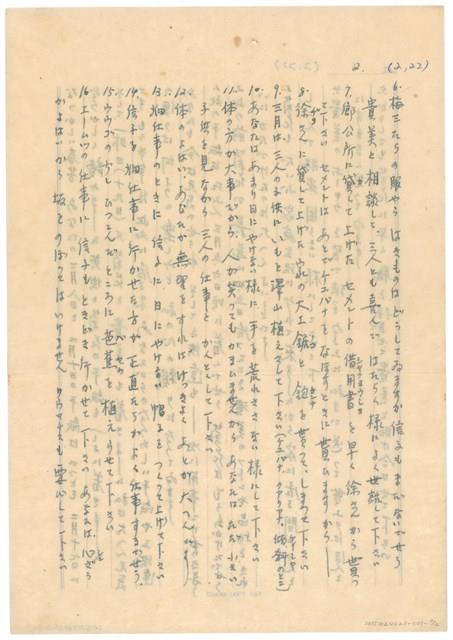 2. (2,22)
6.梅三たちの服やら はきものは どうして ゐますか 信子も まだないでせう
貴美と相談して 三人とも喜んで はたらく様に よく世話して下さい
7.郷公所に貸して上げた セメントの借用書を早く徐さんから貰つ
て下さい セメントは あとで なほすときに貰ひますから
8.徐さんに貸して上げた 家の大工鋸と 鉋を貰つて、しまつて下さい
9.三月は三人の子供に いもを澤山植えさして下さい
10.あなたは あまり日にやけない様に 手を荒れささない様にして下さい
11.体の方が大事だから、人が笑つてもかまひませんから あなたは ただ小さい
子供を見ながら 三人の仕事を かんとくして下さい
12.体のよはい あなたが無理をすれば けつきよく あとが大へんです
13.畑仕事のときに 信子に 日にやけない 帽子を つくつて上げて下さい
14.信子を畑仕事に行かせた方が 正直だから よく仕事するでせう。
15. ところに 芭蕉を植えらせて下さい
16. の仕事に 信子もときどき行かせて下さい あなたは 心ぞう
がよはいから 坂を のぼつては いけません も要心して下さい